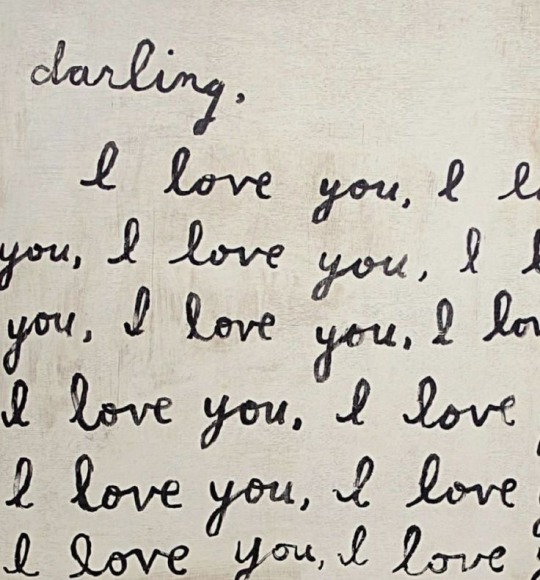 darling,
I love you, I lo
you, I love you, I l
you, I love you, I lov
I love you, I love
I love you, I love
I love you, I love